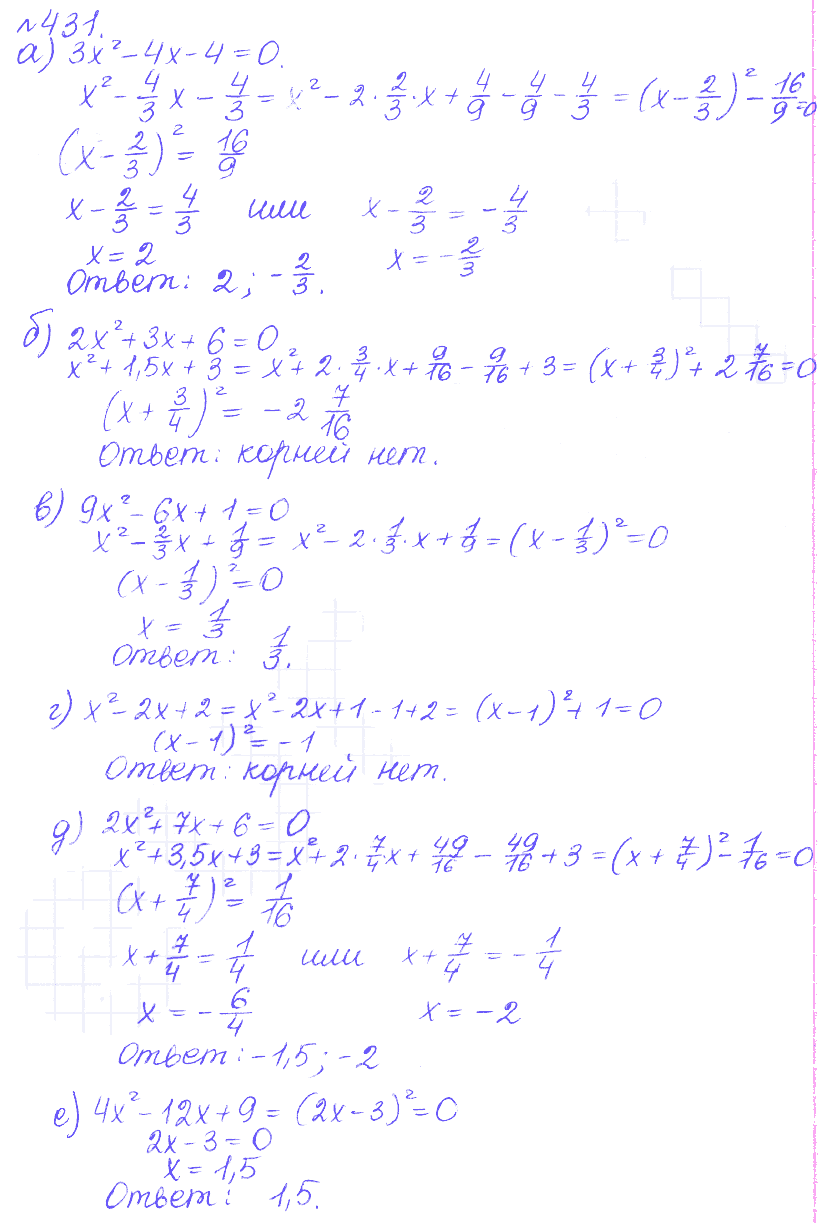 №431.
а) 3x² - 4x - 4 = 0.
x² - 4/3 x - 4/3 = x² - 2 · 2/3 · x + 4/9 - 4/9 - 4/3 = (x - 2/3)² - 16/9 = 0
(x - 2/3)² = 16/9
x - 2/3 = 4/3 или x - 2/3 = - 4/3
x = 2 x = - 2/3
Ответ: 2; - 2/3.
б) 2x² + 3x + 6 = 0
x² + 1,5x + 3 = x² + 2 · 3/4 · x + 9/16 - 9/16 + 3 = (x + 3/4)² + 2 7/16 = 0
(x + 3/4)² = - 2 7/16
Ответ: корней нет.
в) 9x² - 6x + 1 = 0
x² - 2/3 x + 1/9 = x² - 2 · 1/3 · x + 1/9 = (x - 1/3)² = 0
(x - 1/3)² = 0
x = 1/3
Ответ: 1/3.
г) x² - 2x + 2 = x² - 2x + 1 - 1 + 2 = (x - 1)² + 1 = 0
(x - 1)² = - 1
Ответ: корней нет.
д) 2x² + 7x + 6 = 0
x² + 3,5x + 3 = x² + 2 · 7/4 x + 49/16 - 49/16 + 3 = (x + 7/4)² - 1/16 = 0
(x + 7/4)² = 1/16
x + 7/4 = 1/4 или x + 7/4 = - 1/4
x = - 6/4 x = - 2
Ответ: - 1,5; - 2
е) 4x² - 12x + 9 = (2x - 3)² = 0
2x - 3 = 0
x = 1,5
Ответ: 1,5.